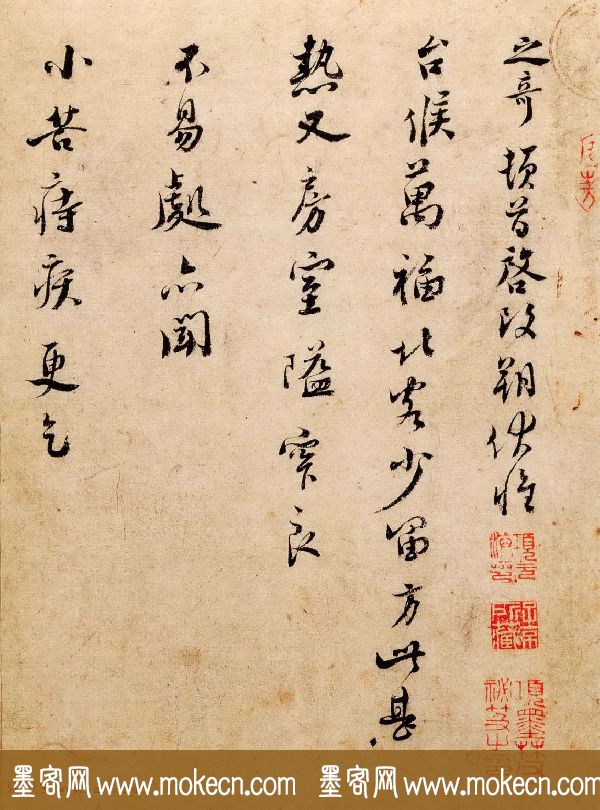 之奇頓首啓改朔伏惟
台候萬福北客少留方此甚
熱又房室隘窄良
不易處亦聞
小苦痔疾更乞
墨客网 www.mokecn.com 墨客网 www.mokecn.com